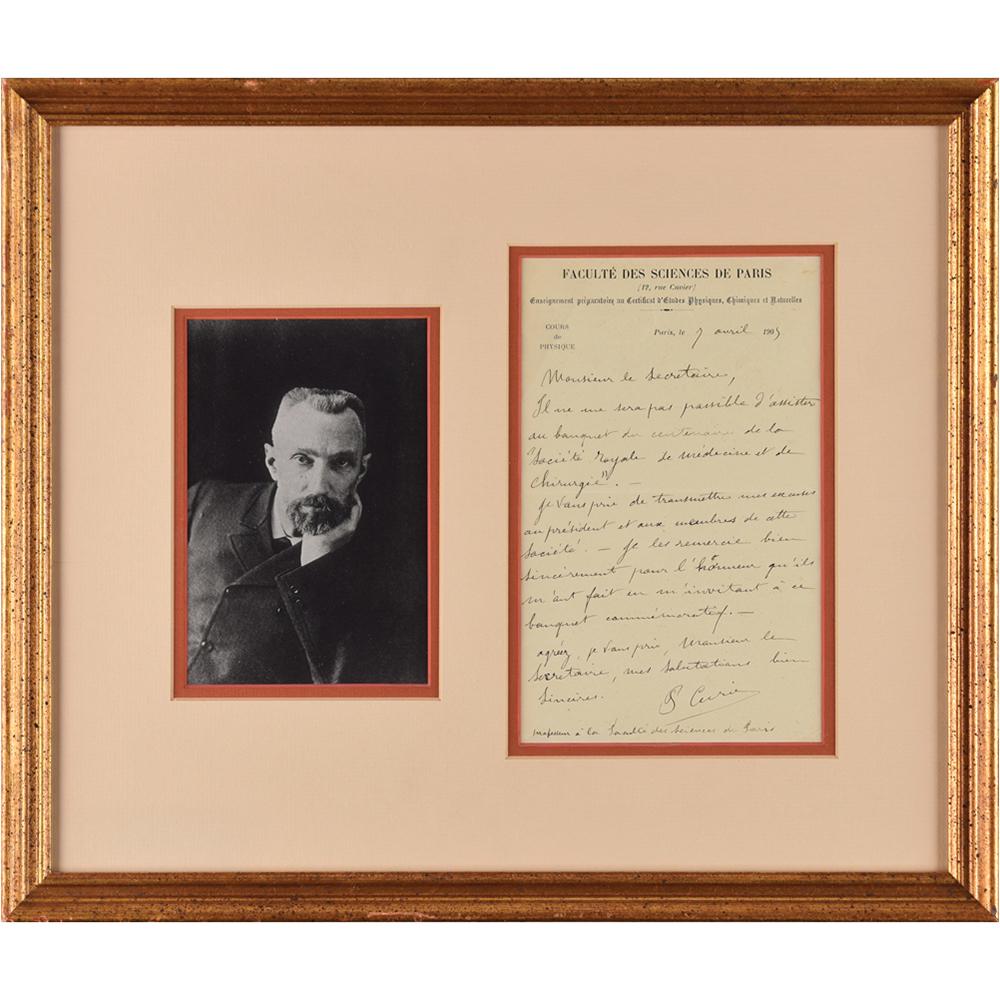 FACULTÉ DES SCIENCES DE PARIS
(12, rue Cuvier)
Enseignement préparatoire au Certificat d'Études Physiques, Chimiques et Naturelles
COURS
de
PHYSIQUE
Paris, le 7 avril 1905
Monsieur le Secretaire,
Il ne me sera pas possible d'assister
au banquet du centenaire de la
Société royale de médecine et de
chirurgie. —
Je vous prie de transmettre mes excuses
au président et aux membres de cette
Société. — Je les remercie bien
sincèrement pour l'honneur qu'ils
m'ont fait en m'invitant à ce
banquet commémoratif. —
agréez, je vous prie, Monsieur le
Secretaire, mes salutations bien
sincères.
P Curie
professeur à la Faculté des Sciences de Paris